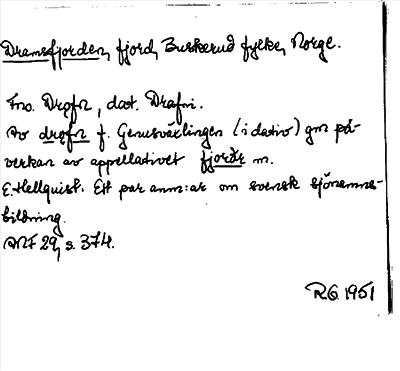 Dramsfjorden, fjord, Buskerud fylke, Norge.
Fno. Drǫfn, dat. Drafni.
Av drǫfn f. Genusväxlingen (i dativ) gm på-
verkan av appellativet fjorðr m.
E. Hellquist. Ett par anm:ar om svensk sjönamns-
bildning.
ANF 29, s. 374.
R.O. 1951